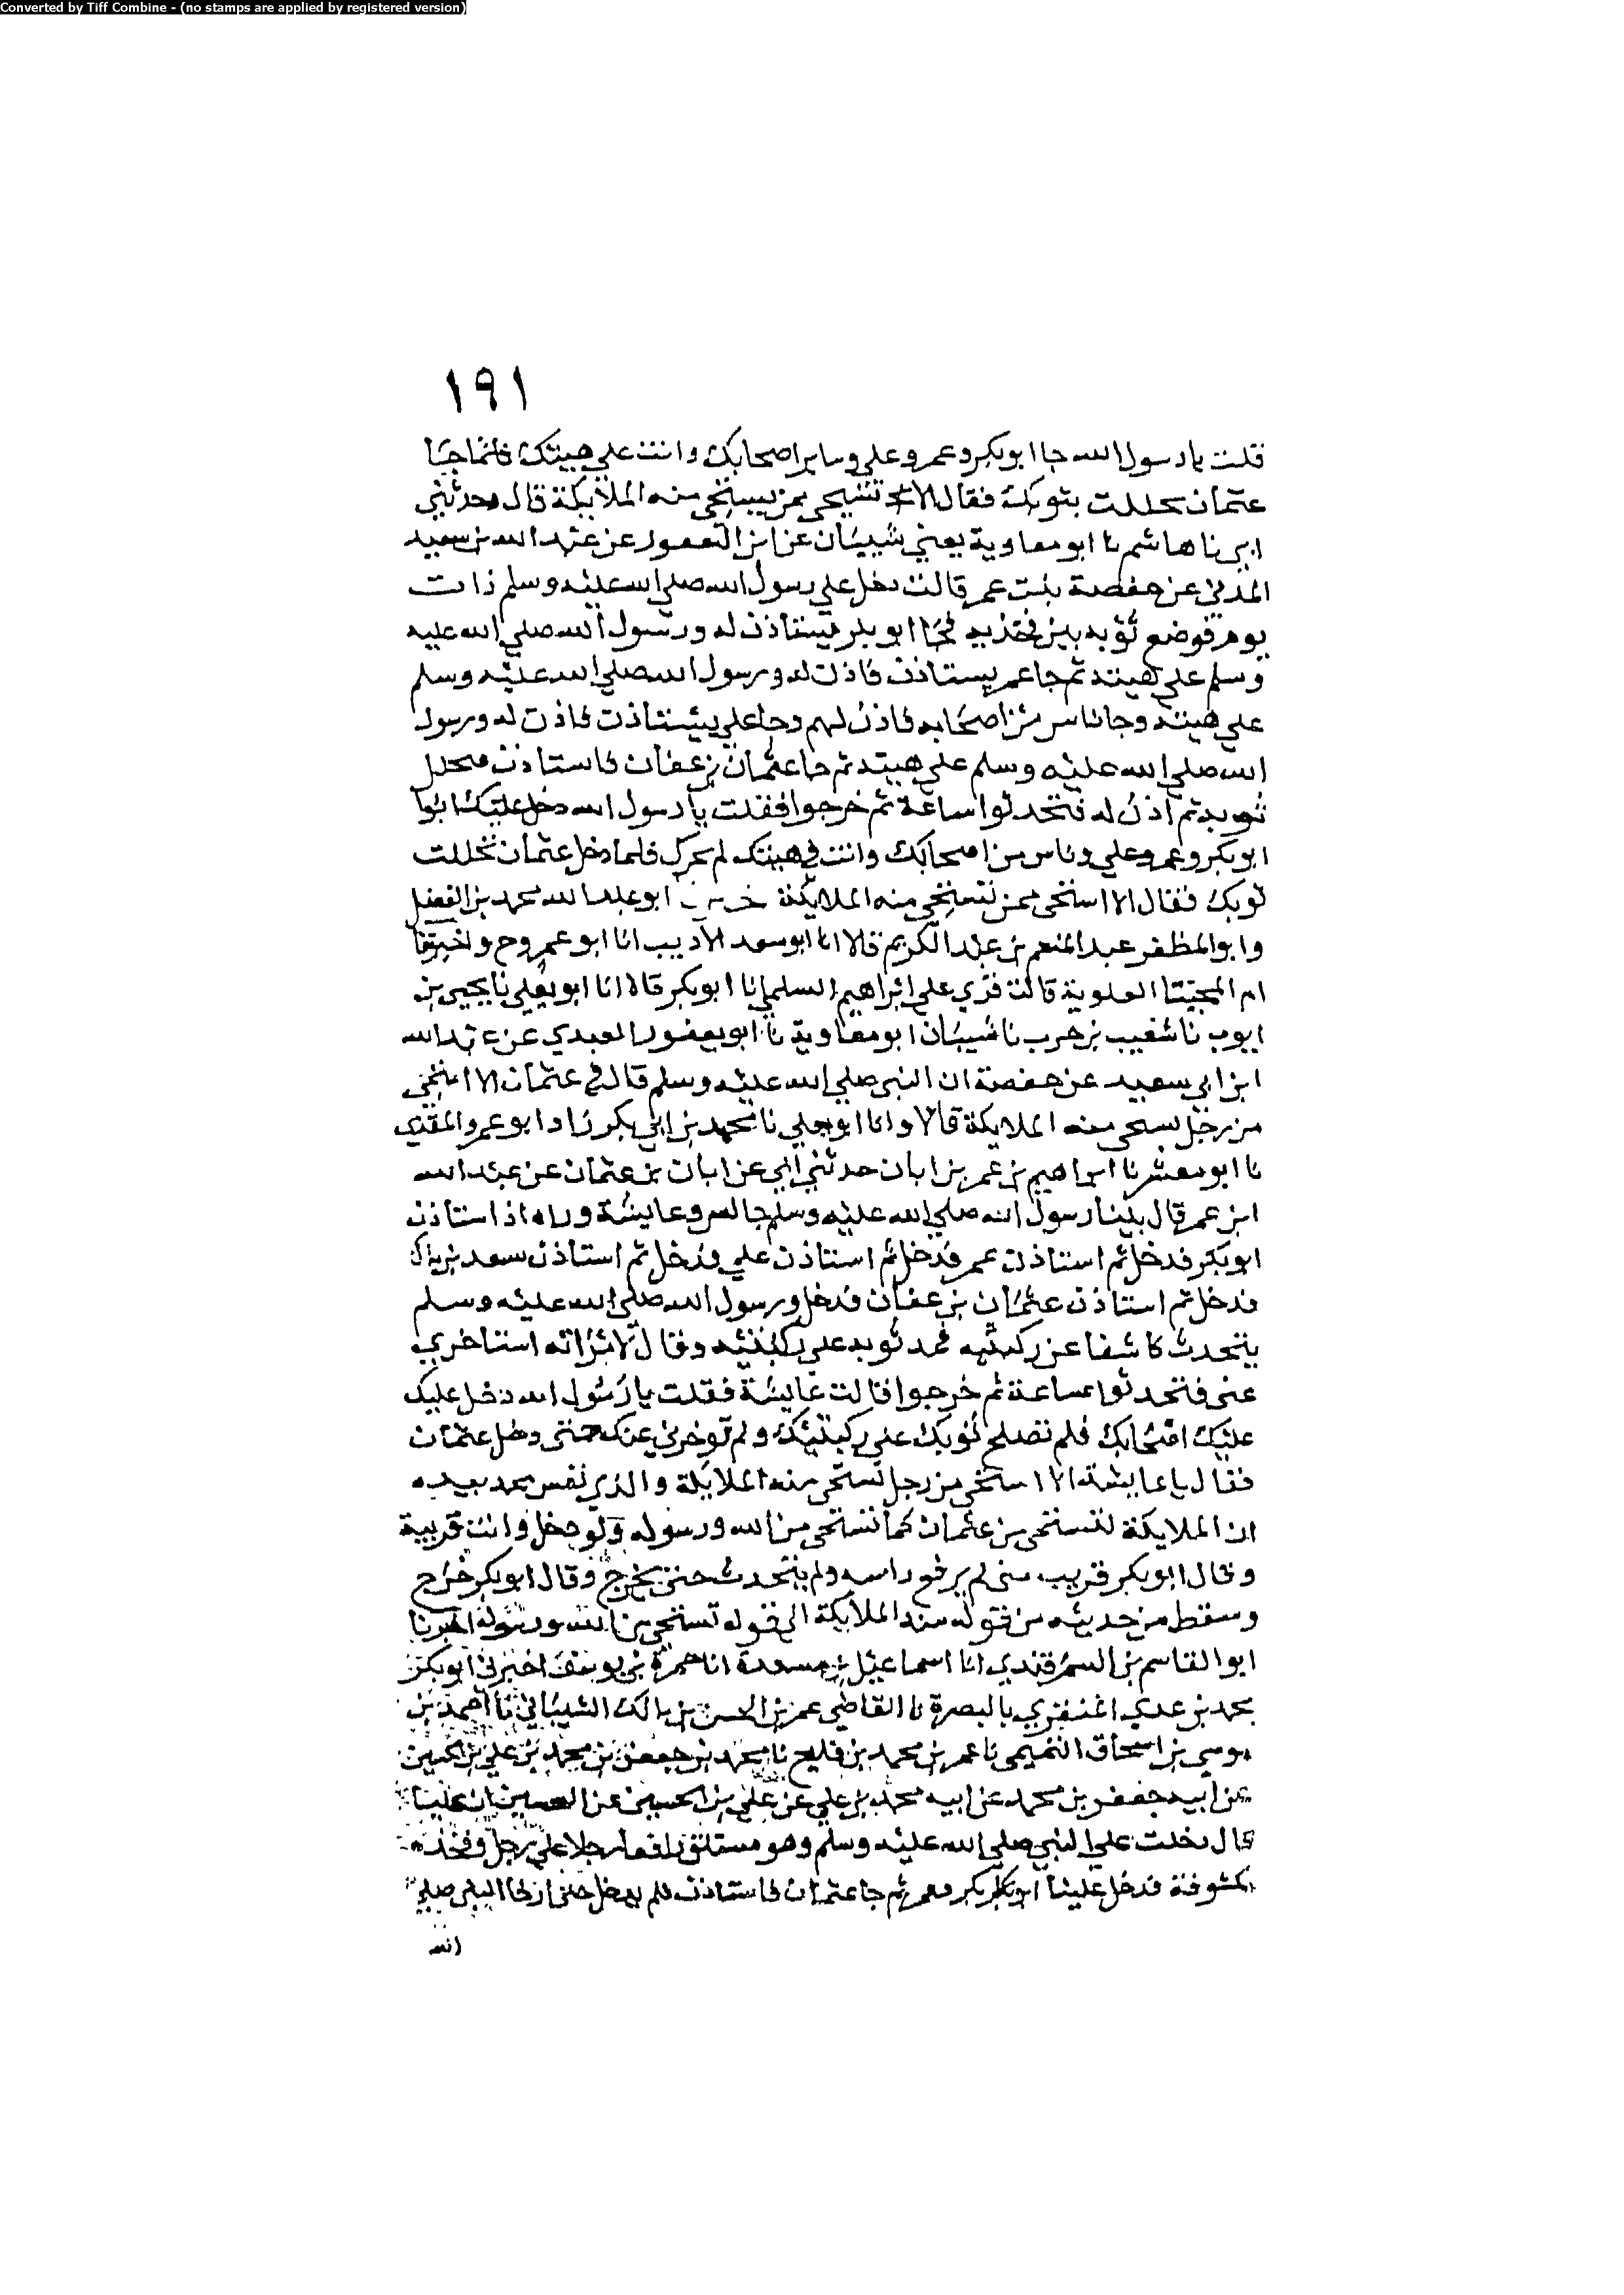 Converted by Tiff Combine - (no stamps are applied by registered version)
١٩١
قلت يا رسول الله جا ابو بكر وعمر وعلي وساير اصحابك وانت على هيئتك فلما جا
عثمان تجللت بثوبك فقال الا تستحي ممن يستحي منه الملايكة قال وحدثني
ابي نا هاشم نا ابو معاوية يعني شيبان عن ابي اليعفور عن عبد الله بن سعيد
المدني عن حفصة بنت عمر قالت دخل علي رسول الله صلى الله عليه وسلم ذات
يوم فوضع ثوبه بين فخذيه فجا ابو بكر يستاذن فاذن له ورسول الله صلى الله عليه
وسلم على هيئته ثم جا عمر يستاذن فاذن له ورسول الله صلى الله عليه وسلم
على هيئته وجا ناس من اصحابه فاذن لهم وجا علي يستاذن فاذن له ورسول
الله صلى الله عليه وسلم على هيئته ثم جا عثمان بن عفان فاستاذن فتجلل
ثوبه ثم اذن له فتحدثوا ساعة ثم خرجوا فقلت يا رسول الله دخل عليك ابوا
ابو بكر وعمر وعلي وناس من اصحابك وانت في هيئتك لم تحرك فلما دخل عثمان تجللت
ثوبك فقال الا استحي ممن تستحي منه الملايكة ابو عبد الله محمد بن الفضل
وابو المظفر عبد المنعم بن عبد الكريم قالا انا ابو سعد الاديب انا ابو عمرو ح واخبرتنا
ام المجتبا العلوية قالت قري على ابراهيم السلمي انا ابو بكر قالا انا ابو يعلي نا يحيى بن
ايوب نا شعيب بن حرب نا شيبان ابو معاوية نا ابو يعفور العبدي عن عبد الله
ابن ابي سعيد عن حفصة ان النبي صلى الله عليه وسلم قال في عثمان الا استحي
من رجل تستحي منه الملايكة قالا وانا ابو يعلي نا محمد بن ابي بكر زاد ابو عمرو المقدمي
نا ابو معشر نا ابراهيم بن عمر بن ابان حدثني ابي عن ابان بن عثمان عن عبد الله
ابن عمر قال بينا رسول الله صلى الله عليه وسلم جالس وعايشة وراه اذ استاذن
ابو بكر فدخل ثم استاذن عمر فدخل ثم استاذن علي فدخل ثم استاذن سعد بن مالك
فدخل ثم استاذن عثمان بن عفان فدخل ورسول الله صلى الله عليه وسلم
يتحدث كاشفا عن ركبتيه فمد ثوبه على ركبتيه وقال لامراته استاخري
عني فتحدثوا ساعة ثم خرجوا فقالت عايشة فقلت يا رسول الله دخل عليك
عليك اصحابك فلم تصلح ثوبك على ركبتيك ولم توخرني عنك حتى دخل عثمان
فقال يا عايشة الا استحي من رجل تستحي منه الملايكة والذي نفس محمد بيده
ان الملايكة لتستحي من عثمان كما تستحي من الله ورسوله ولو دخل وانت قريبة
وقال ابو بكر قريب مني لم يرفع راسه ولم يتحدث حتى يخرج وقال ابو بكر خرج
وسقط من حديثه من قوله منه الملايكة الى قوله تستحي من الله ورسوله اخبرنا
ابو القاسم بن السمرقندي انا اسماعيل بن مسعدة انا حمزة بن يوسف اخبرني ابو بكر
محمد بن عدي المنقري بالبصرة نا القاضي عمر بن الحسن بن مالك الشيباني نا احمد بن
موسى بن اسحاق التميمي نا عمر بن محمد بن فليح نا محمد بن جعفر بن محمد بن علي بن الحسين
عن ابيه جعفر بن محمد عن ابيه محمد بن علي عن علي بن الحسين عن الحسين ان عليا
قال دخلت على النبي صلى الله عليه وسلم وهو مستلق رافعا رجلا على رجل وفخذه
مكشوفة فدخل علينا ابو بكر بكر وعمر ثم جا عثمان فاستاذن فلم يدخل حتى ارخا النبي صلى
الله